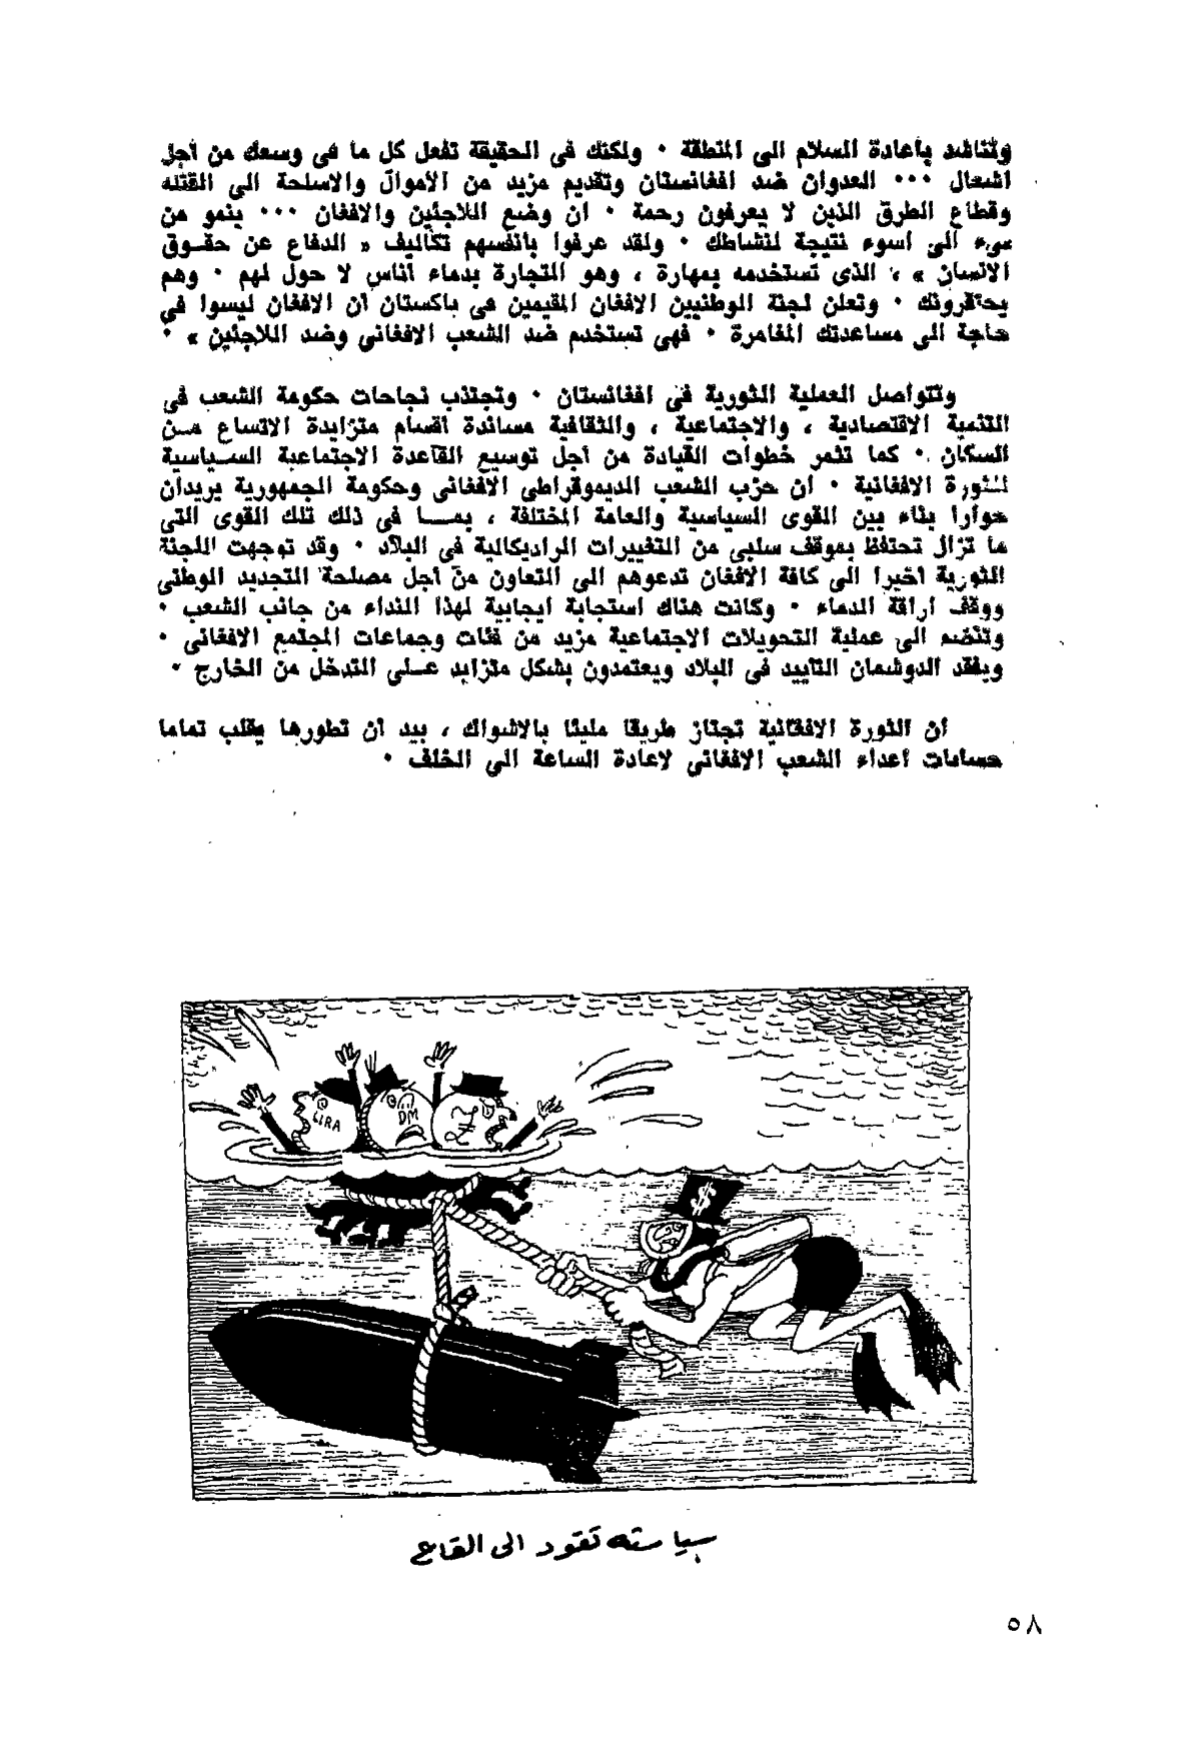 وتناشد باعادة السلام الى المنطقة ٠ ولكنك فى الحقيقة تفعل كل ما فى وسعك من أجل
اشعال ٠٠٠ العدوان ضد افغانستان وتقديم مزيد من الأموال والاسلحة الى القتله
وقطاع الطرق الذين لا يعرفون رحمة ٠ ان وضع اللاجئين والافغان ٠٠٠ ينمو من
سىء الى اسوء نتيجة لنشاطك ٠ ولقد عرفوا بانفسهم تكاليف « الدفاع عن حقوق
الانسان » ، الذى تستخدمه بمهارة ، وهو التجارة بدماء أناس لا حول لهم ٠ وهم
يحتقرونك ٠ وتعلن لجنة الوطنيين الافغان المقيمين فى باكستان أن الافغان ليسوا فى
حاجة الى مساعدتك المغامرة ٠ فهى تستخدم ضد الشعب الافغانى وضد اللاجئين » ٠
وتتواصل العملية الثورية فى افغانستان ٠ وتجتذب نجاحات حكومة الشعب فى
التنمية الاقتصادية ، والاجتماعية ، والثقافية مساندة أقسام متزايدة الاتساع من
السكان ٠ كما تثمر خطوات القيادة من أجل توسيع القاعدة الاجتماعية السياسية
للثورة الافغانية ٠ ان حزب الشعب الديموقراطى الافغانى وحكومة الجمهورية يريدان
حوارا بناء بين القوى السياسية والعامة المختلفة ، بما فى ذلك تلك القوى التى
ما تزال تحتفظ بموقف سلبى من التغييرات الراديكالية فى البلاد ٠ وقد توجهت اللجنة
الثورية أخيرا الى كافة الافغان تدعوهم الى التعاون من أجل مصلحة التجديد الوطنى
ووقف اراقة الدماء ٠ وكانت هناك استجابة ايجابية لهذا النداء من جانب الشعب ٠
وتنضم الى عملية التحويلات الاجتماعية مزيد من فئات وجماعات المجتمع الافغانى ٠
ويفقد الدوشمان التأييد فى البلاد ويعتمدون بشكل متزايد على التدخل من الخارج ٠
ان الثورة الافغانية تجتاز طريقا مليئا بالاشواك ، بيد أن تطورها يقلب تماما
حسابات أعداء الشعب الافغانى لاعادة الساعة الى الخلف ٠
LIRA
DM
£
$
سياسته تقود الى القاع
٥٨